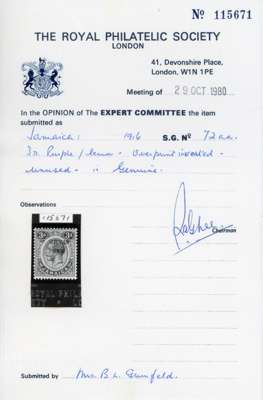 Nº 115671
THE ROYAL PHILATELIC SOCIETY
LONDON
41, Devonshire Place,
London, W1N 1PE
Meeting of 29 OCT 1980
In the OPINION of The EXPERT COMMITTEE the item
submitted as
Jamaica: 1916 S.G. Nº 72aa.
3d. Purple / lemon - Overprint inverted -
unused - is Genuine.
Observations
115671
Chairman
JAMAICA
ROYAL PHIL
Submitted by Mrs. B. L.